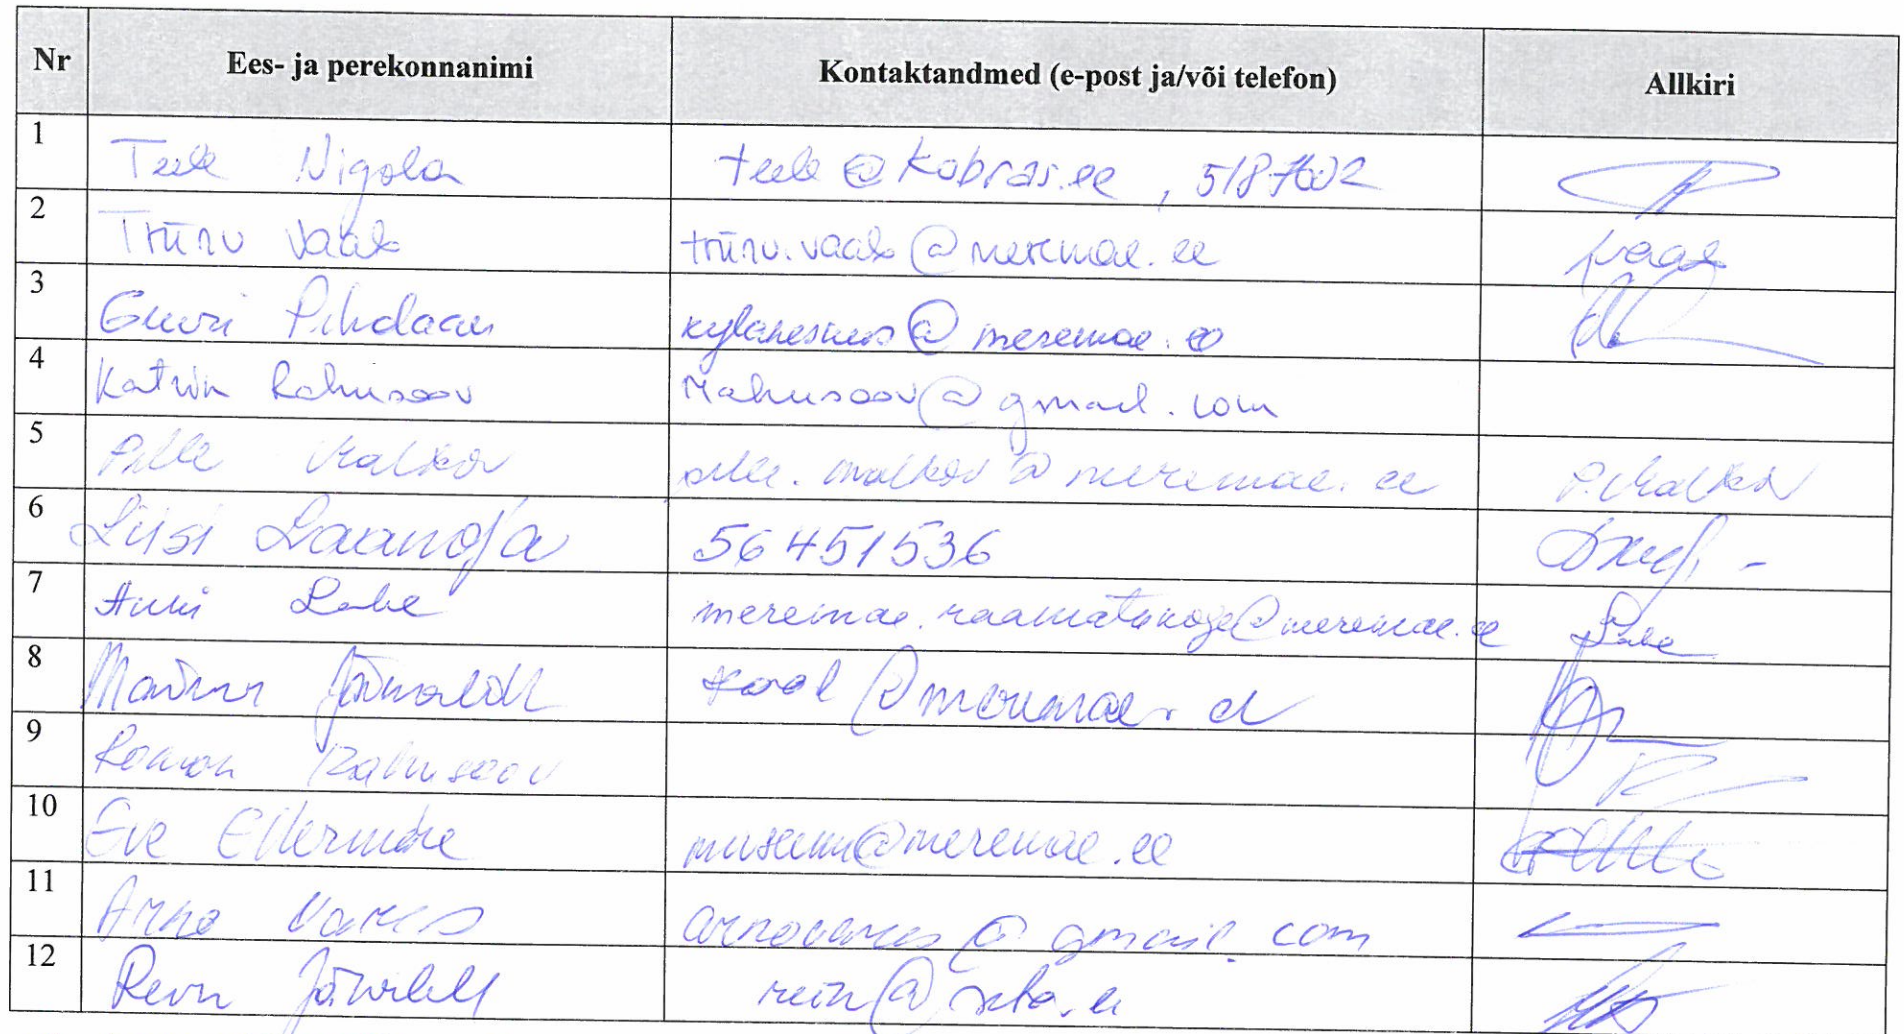 Nr Ees- ja perekonnanimi Kontaktandmed (e-post ja/või telefon) Allkiri
1 Teele Nigola teele@kobras.ee, 5187602
2 Triinu Vaab triinu.vaab@meremae.ee
3 kylakeskus@meremae.ee
4 Katrin Rahusoov krahusoov@gmail.com
5 Pille Malkov pille.malkov@meremae.ee P.Malkov
6 Liisi Laanoja 56451536
7 Anni Labe meremae.raamatukogu@meremae.ee Labe
8 Järvelill kool@meremae.ee
9 Roman Rahusoov
10 Eve Ellermäe muuseum@meremae.ee
11 Arno Vares arnovares@gmail.com
12 Rein Järvelill rein@seto.ee